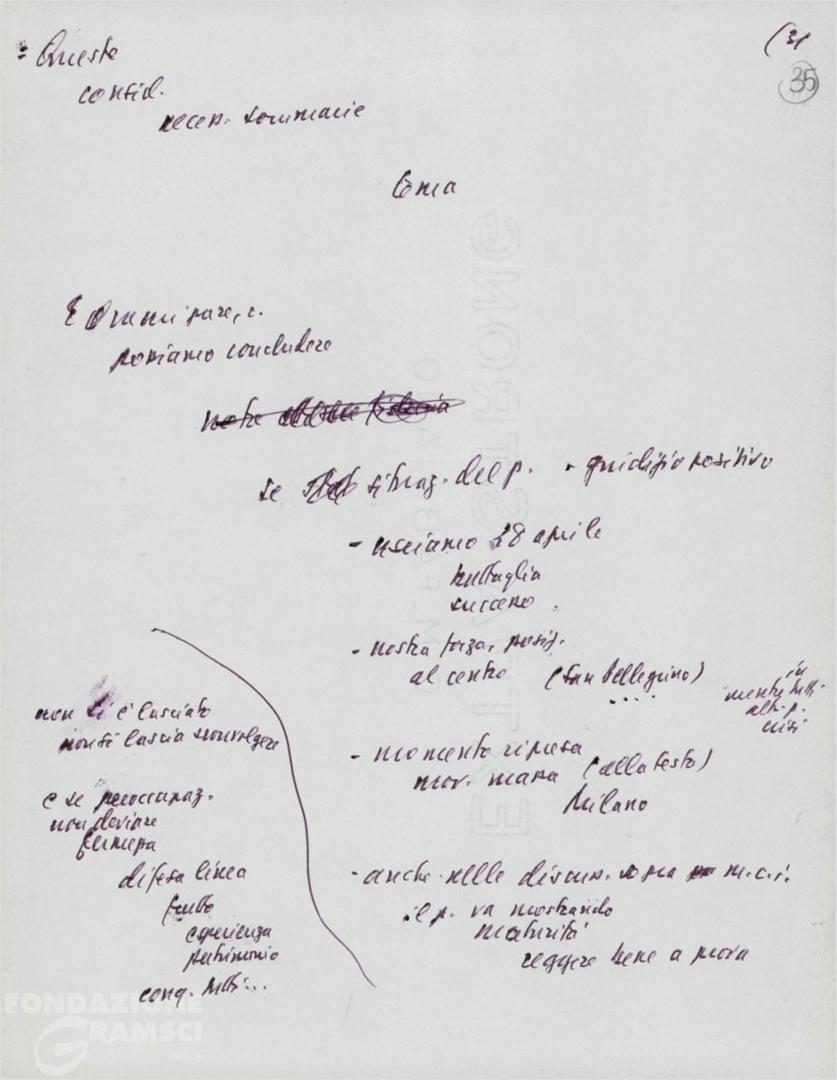 (31
35
= Queste
consid.
necess. sommarie
tema
E ormai pare, c.
possiamo concludere
se situaz. del p. - giudizio positivo
- usciamo 28 aprile
battaglia
successo.
- nostra forza, posiz.
al centro (San Pellegrino)
....
in
mentre tutti
altri p.
crisi
- momento ripresa
mov. massa (alla testa)
Milano
- anche nelle discuss. m.c.i.
il p. va mostrando
maturità
reggere bene a prova
non si è lasciato
non si lascia sconvolgere
e se preoccupaz.
non deviare
fermezza
difesa linea
frutto
esperienza
patrimonio
conq. tutti...
FONDAZIONE
GRAMSCI